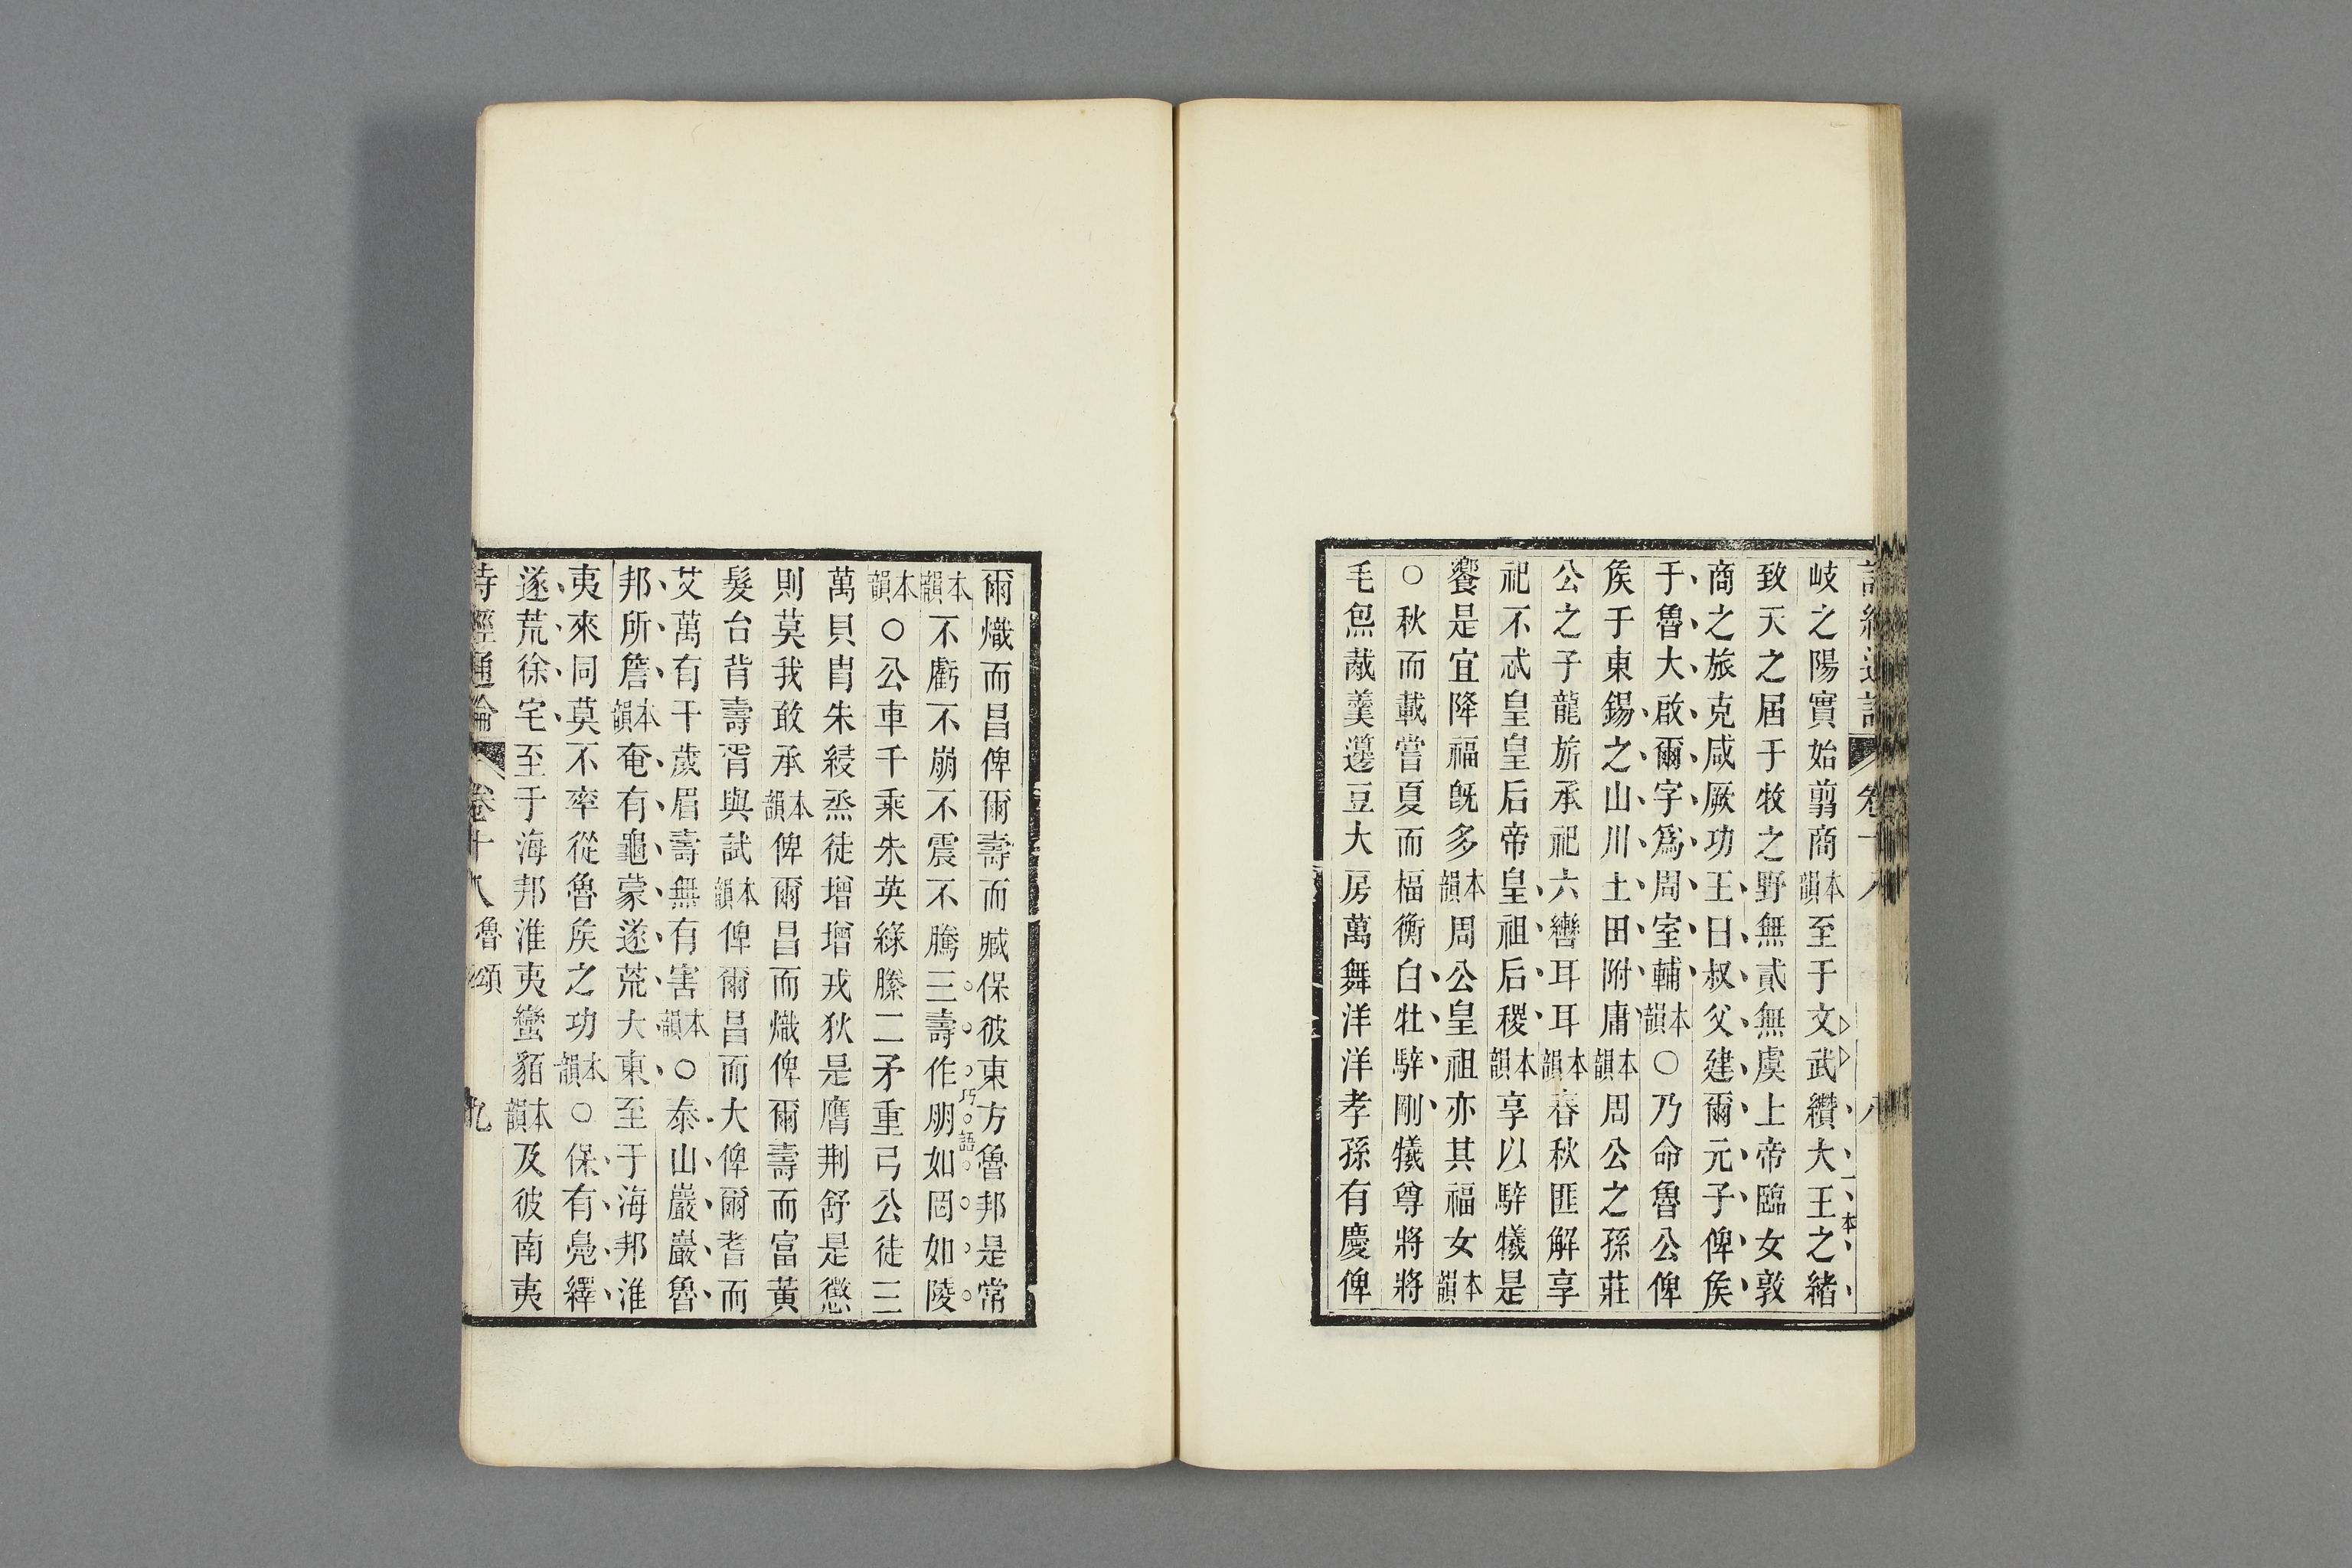 岐之陽實始翦商本韻至于文武纘大王之緒
本
致天之屆于牧之野無貳無虞上帝臨女敦
商之旅克咸厥功王曰叔父建爾元子俾矦
于魯大啟爾字爲周室輔本韻○乃命魯公俾
矦于東錫之山川土田附庸本韻周公之孫莊
公之子龍旂承祀六轡耳耳本韻春秋匪解享
祀不忒皇皇后帝皇祖后稷本韻享以騂犧是
饗是宜降福旣多本韻周公皇祖亦其福女本韻
○秋而載嘗夏而楅衡白牡騂剛犧尊將將
毛炰胾羹籩豆大房萬舞洋洋孝孫有慶俾
爾熾而昌俾爾壽而臧保彼東方魯邦是常
巧語
本韻不虧不崩不震不騰三壽作朋如岡如陵
本韻○公車千乘朱英綠縢二矛重弓公徒三
萬貝胄朱綅烝徒增增戎狄是膺荆舒是懲
則莫我敢承本韻俾爾昌而熾俾爾壽而富黃
髮台背壽胥與試本韻俾爾昌而大俾爾耆而
艾萬有千歲眉壽無有害本韻○泰山巖巖魯
邦所詹本韻奄有龜蒙遂荒大東至于海邦淮
夷來同莫不率從魯矦之功本韻○保有鳧繹
遂荒徐宅至于海邦淮夷蠻貊本韻及彼南夷
詩經通論 卷十八 魯頌 九